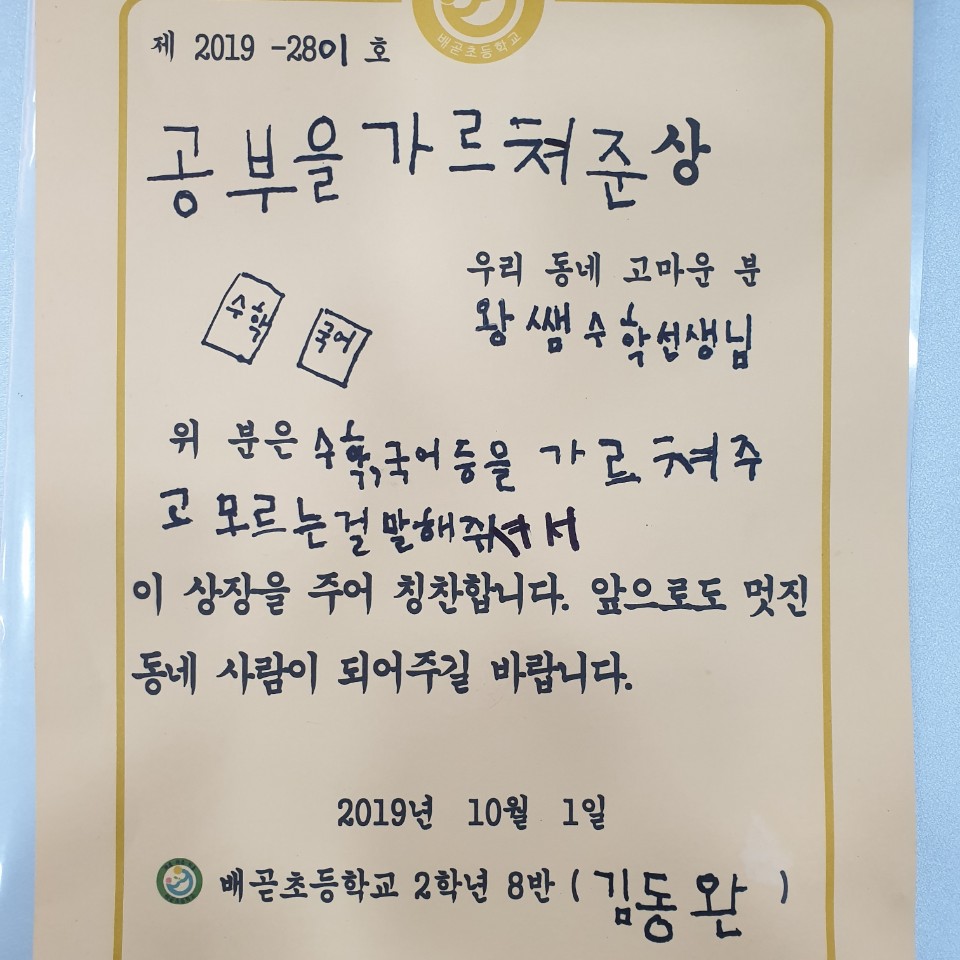 배곧초등학교
제 2019 -2801 호
공부을 가르쳐준상
우리 동네 고마운 분
왕쌤수학선생님
수학
국어
위 분은 수학,국어등을 가르쳐주
고 모르는걸 말해주셔서
이 상장을 주어 칭찬합니다. 앞으로도 멋진
동네 사람이 되어주길 바랍니다.
2019년 10월 1일
배곧초등학교 2학년 8반 ( 김동완 )